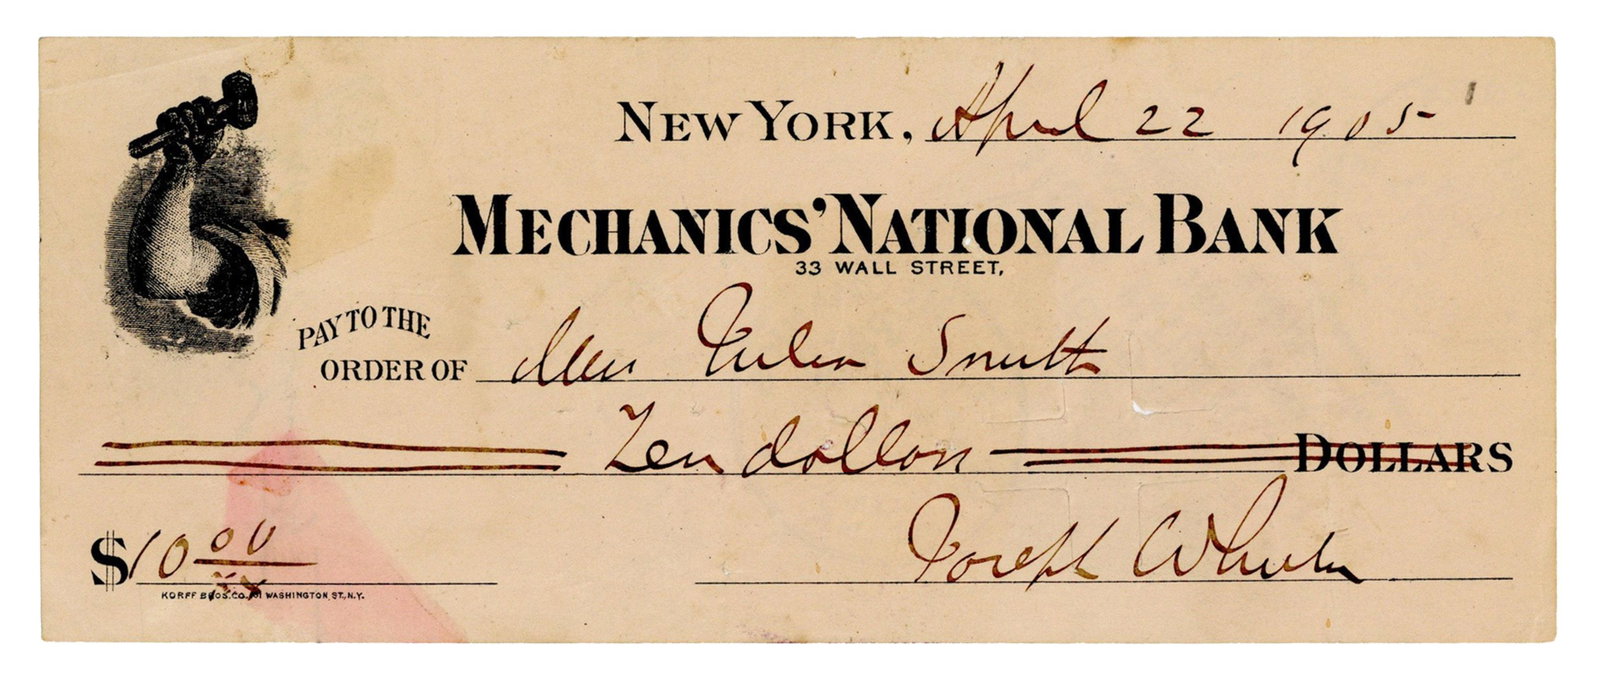 NEW YORK, April 22 1905
MECHANICS' NATIONAL BANK
33 WALL STREET,
PAY TO THE
ORDER OF Smith
Ten dollars DOLLARS
$10 00/xx
Joseph Wheeler
KORFF BROS. CO. WASHINGTON ST., N.Y.